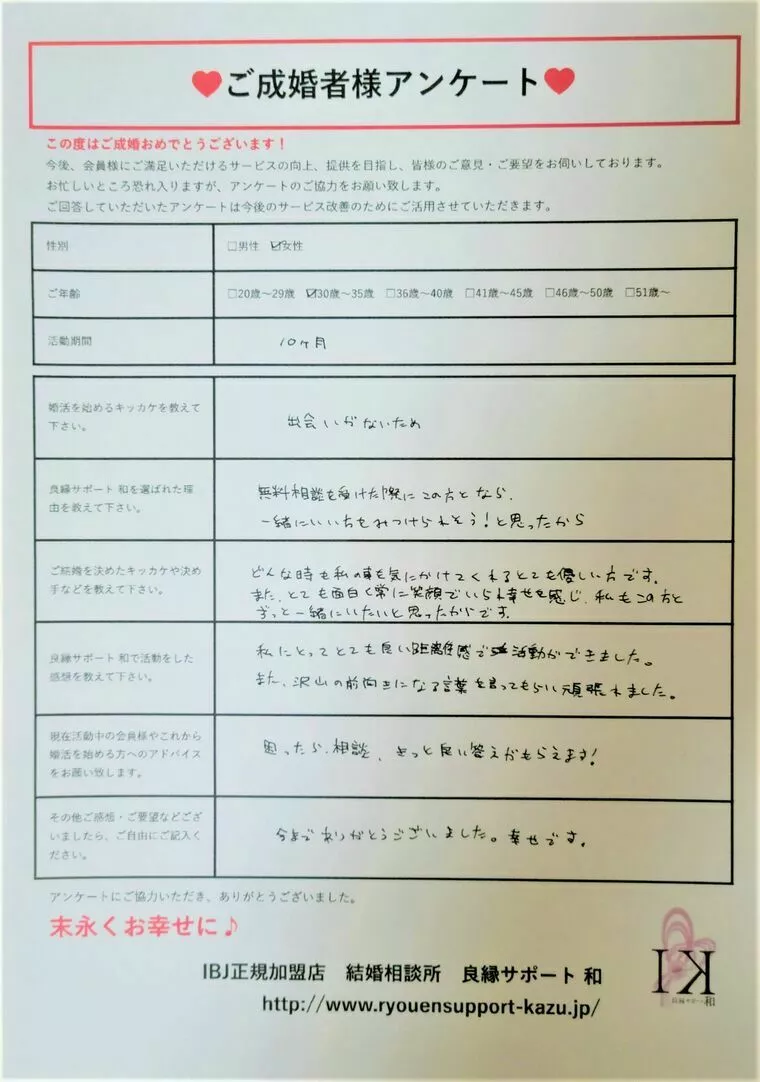 ♥ご成婚者様アンケート♥
この度はご成婚おめでとうございます！
今後、会員様にご満足いただけるサービスの向上、提供を目指し、皆様のご意見・ご要望をお伺いしております。
お忙しいところ恐れ入りますが、アンケートのご協力をお願い致します。
ご回答していただいたアンケートは今後のサービス改善のためにご活用させていただきます。
性別
□男性 ☑女性
ご年齢
□20歳～29歳 ☑30歳～35歳 □36歳～40歳 □41歳～45歳 □46歳～50歳 □51歳～
活動期間
10ヶ月
婚活を始めるキッカケを教えて
下さい。
出会いがないため
良縁サポート 和を選ばれた理
由を教えて下さい。
無料相談を受けた際にこの方となら、
一緒にいい方をみつけられそう！と思ったから
ご結婚を決めたキッカケや決め
手などを教えて下さい。
どんな時も私の事を気にかけてくれるとても優しい方です。
また、とても面白く常に笑顔でいられ幸せを感じ、私もこの方と
ずっと一緒にいたいと思ったからです。
良縁サポート 和で活動をした
感想を教えて下さい。
私にとってとても良い距離感で活動ができました。
また、沢山の前向きになる言葉を言ってもらい頑張れました。
現在活動中の会員様やこれから
婚活を始める方へのアドバイス
をお願い致します。
困ったら、相談、きっと良い答えがもらえます！
その他ご感想・ご要望などござ
いましたら、ご自由にご記入く
ださい。
今までありがとうございました。幸せです。
アンケートにご協力いただき、ありがとうございました。
末永くお幸せに♪
IBJ正規加盟店 結婚相談所 良縁サポート 和
http://www.ryouensupport-kazu.jp/
良縁サポート和